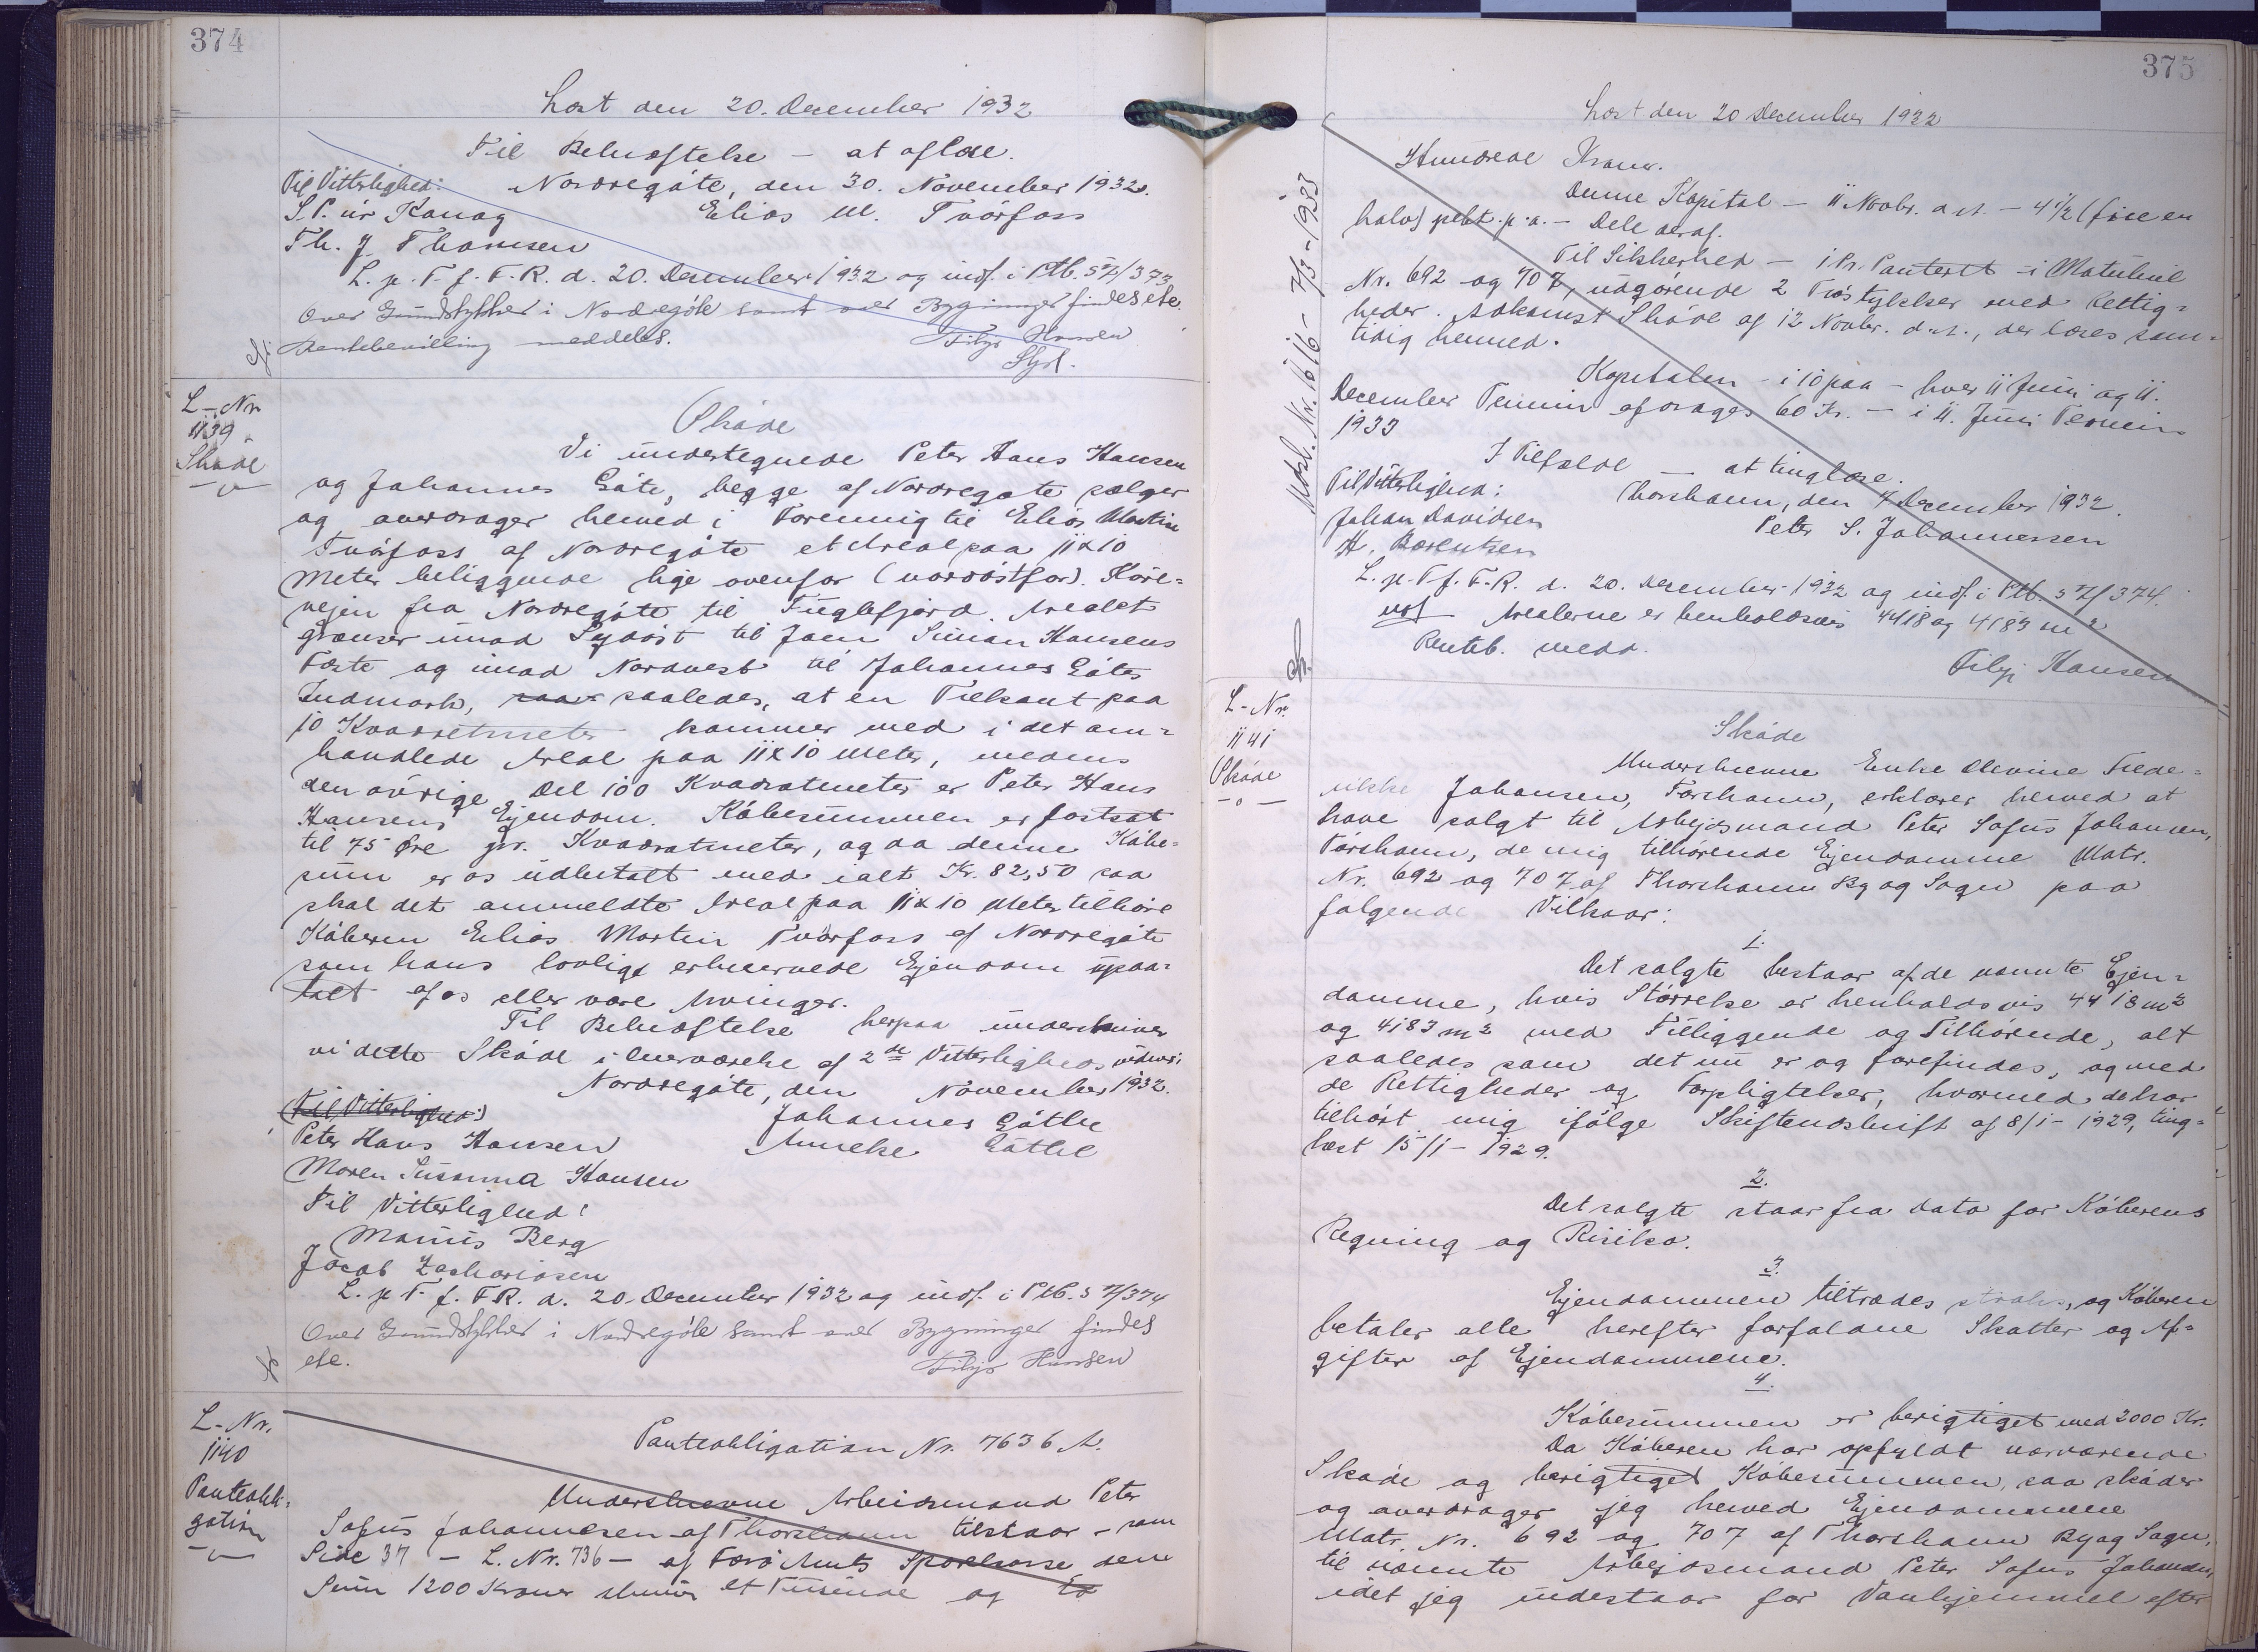 374
Læst den 20. December 1932
Til Bekræftelse – at aflæse.
Til Vitterlighed: Nordregøte, den 30. November 1932.
S.P. úr Konoy Elias M. Tvørfoss
Th. J. Thomsen
L. p. T. f. F. R. d. 20. December 1932 og indf. i Ptb. 5 7/373
Over Grundstykker i Nordregøte samt over Bygninger findes etc.
Rentebevilling meddeles. Filip Hansen
Styrl.
L-Nr.
1139
Skøde
Skøde
Vi undertegnede Peter Hans Hansen
og Johannes Gøte, begge af Nordregøte sælger
og overdrager herved i Forening til Elias Martin
Tvørfoss af Nordregøte et Areal paa 11x10
Meter beliggende lige ovenfor (nordøstfor) Køre=
vejen fra Nordregøte til Fuglefjord. Arealet
grænser imod Sydøst til Joen Simon Hansens
Fæste og imod Nordvest til Johannes Gøtes
Indmark, saa saaledes, at en Trekant paa
10 Kvadratmeter kommer med i det om=
handlede Areal paa 11x10 Meter, medens
den øvrige Del 100 Kvadratmeter er Peter Hans
Hansens Ejendom. Købesummen er fastsat
til 75 Øre pr. Kvadratmeter, og da denne Købe=
sum er os udbetalt med ialt Kr. 82,50 saa
skal det anmeldte Areal paa 11x10 Meter tilhøre
Køberen Elias Martin Tvørfoss af Nordregøte
som hans lovlige erhvervede Ejendom upaa=
talt af os eller vore Arvinger.
Til Bekræftelse herpaa underskriver
vi dette Skøde i Overværelse af 2de Vitterlighedsvidner.
Nordregøte, den November 1932.
(Til Vitterlighed:) Johannes Gøthe
Peter Hans Hansen Anneke Gøthe
Maren Susanna Hansen
Til Vitterlighed:
Marius Berg
Jacob Zachariasen
L. p. T. f. F. R. d. 20. December 1932 og indf. i Ptb. 5 7/374
Over Grundstykker i Nordregøte samt over Bygninger findes
etc. Filip Hansen
L-Nr.
1140
Panteobli=
gation
Panteobligation Nr. 7636 A.
Underskrevne Arbeidsmand Peter
Sofus Johannesen af Thorshavn tilstaar – som
Side 37 – L. Nr. 736 – af Færø Amts Sparekasse den
Sum 1200 Kroner skriver et Tusinde og to
375
Læst den 20 December 1932
Hundrede Kroner.
Denne Kapital – 11 Novbr. d.A. – 4½ (fire en
halv) pCt. p.a. – Dele deraf.
Til Sikkerhed – i Pr. Panteret – i Matrikul
Nr. 692 og 707, udgørende 2 Trøstykker med Rettig=
heder. Adkomst Skøde af 12 Novbr. d.A., der læses sam=
tidig hermed.
Kapitalen – i 10 paa – hver 11 Juni og 11.
December Termin afdrages 60 Kr. – i 11. Juni Termin
1933
I Tilfælde – at tinglæse.
Til Vitterlighed: Thorshavn, den 7 December 1932.
Johan Davidsen Peter S. Johannessen
H. Barentsen
L. p. T. f. F. R. d. 20. December 1932 og indf. i Ptb. 5 7/374.
Arealerne er henholdsvis 4418 og 4183 m²
Renteb. medd. Filip Hansen
Udsl. Nr. 1616 - 7/3-1933
L-Nr.
1141
Skøde
Skøde
Underskrevne Enke Elevine Frede=
rikke Johansen, Tórshavn, erklærer herved at
have solgt til Arbejdsmand Peter Sofus Johansen,
Tórshavn, de mig tilhørende Ejendomme Matr.
Nr. 692 og 707 af Thorshavn By og Sogn paa
følgende Vilkaar:
1.
Det solgte bestaar af de nævnte Ejen=
domme, hvis Størrelse er henholdsvis 4418 m²
og 4183 m² med Tilliggende og Tilhørende, alt
saaledes som det nu er og forefindes, og med
de Rettigheder og Forpligtelser, hvormed de har
tilhørt mig ifølge Skifteudskrift af 8/1-1929, ting=
læst 15/1-1929.
2.
Det solgte staar fra Dato for Køberens
Regning og Risiko.
3.
Ejendommen tiltrædes straks, og Køberen
betaler alle herefter forfaldne Skatter og Af=
gifter af Ejendommene.
4.
Købesummen er berigtiget med 2000 Kr.
Da Køberen har opfyldt nærværende
Skøde og berigtiget Købesummen, saa skøder
og overdrager jeg herved Ejendommene
Matr. Nr. 692 og 707 af Thorshavn By og Sogn,
til nævnte Arbejdsmand Peter Sofus Johansen,
idet jeg indestaar for Vanhjemmel efter